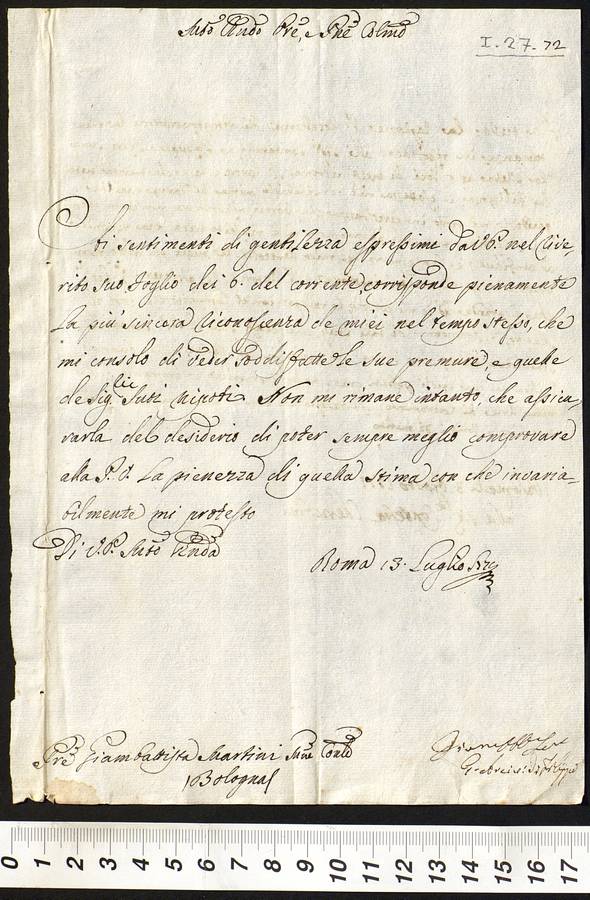 I.27.72
Agli sentimenti di gentilezza espressimi da V.P. nel rive,
rito suo foglio dei 6. del corrente corrisponde pienamente
la più sincera riconoscenza de' miei nel tempo stesso, che
mi consolo di veder soddisfatte le sue premure, e quelle
de Sig.ri suoi nipoti. Non mi rimane intanto, che assicu,
rarla del desiderio di poter sempre meglio comprovare
alla P.V. la pienezza di quella stima con che invaria,
bilmente mi protesto
Di V.P.
Roma 13. Luglio
Pre Giambattista Martini Min. Conle
Bologna
0 1 2 3 4 5 6 7 8 9 10 11 12 13 14 15 16 17